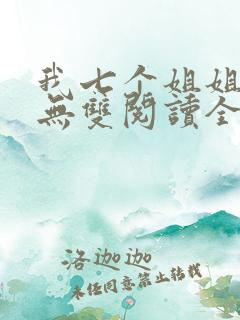 我七个姐姐
無雙閱讀全
洛迦迦
未经同意禁止转载